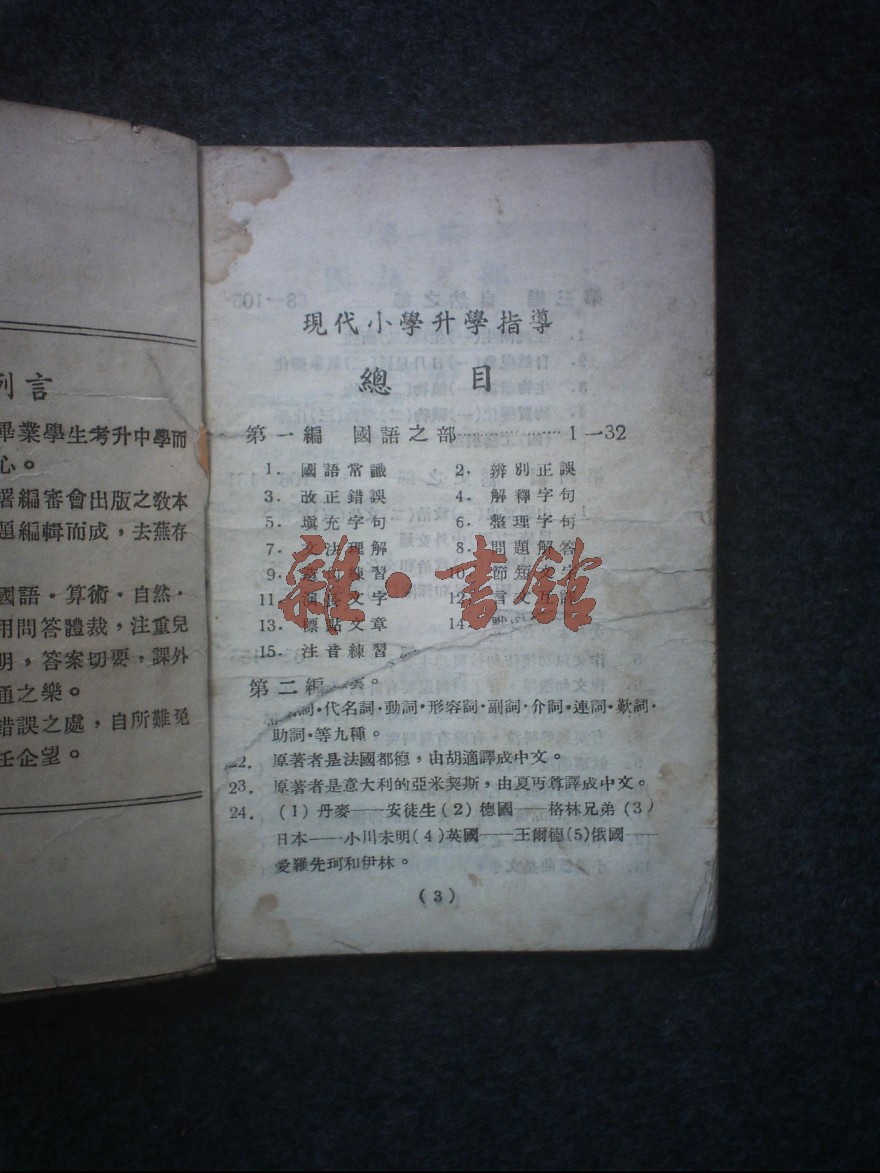 現代小學升學指導
總 目
第一編 國語之部………………1—32
1. 國語常識 2. 辨別正誤
3. 改正錯誤 4. 解釋字句
5. 填充字句 6. 整理字句
7. 文法理解 8. 問題解答
9. 練習 10. 節短文字
11. 文字 12. 言文
13. 標點文章 14.
15. 注音練習
第二編
詞·代名詞·動詞·形容詞·副詞·介詞·連詞·歎詞·
助詞·等九種。
22. 原著者是法國都德，由胡適譯成中文。
23. 原著者是意大利的亞米契斯，由夏丏尊譯成中文。
24. (1) 丹麥——安徒生(2) 德國——格林兄弟 (3)
日本——小川未明(4)英國——王爾德(5)俄國——
愛羅先珂和伊林。
(3)
例言
畢業學生考升中學而
心。
署編審會出版之教本
題編輯而成，去蕪存
國語·算術·自然·
用問答體裁，注重兒
明，答案切要，課外
通之樂。
錯誤之處，自所難免
任企望。
雜·書館